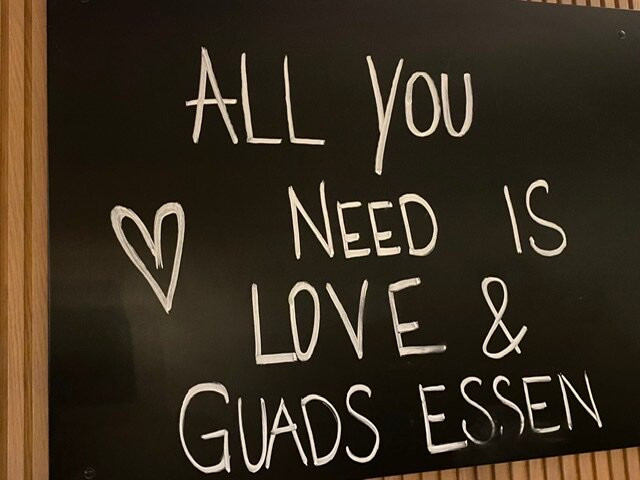 ALL YOU
NEED IS
LOVE &
GUADS ESSEN